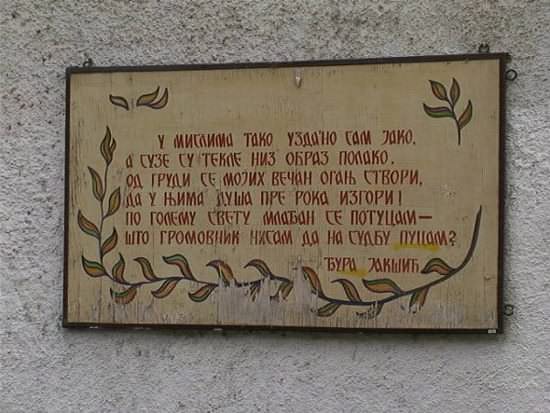 У МИСЛИМА ТАКО УЗДА'НО САМ ЈАКО,
А СУЗЕ СУ ТЕКЛЕ НИЗ ОБРАЗ ПОЛАКО,
ОД ГРУДИ СЕ МОЈИХ ВЕЧАН ОГАЊ СТВОРИ,
ДА У ЊИМА ДУША ПРЕ РОКА ИЗГОРИ!
ПО ГОЛЕМУ СВЕТУ МЛАЂАН СЕ ПОТУЦАМ—
ШТО ГРОМОВНИК НИСАМ ДА НА СУДБУ ПУЦАМ?
ЂУРА ЈАКШИЋ